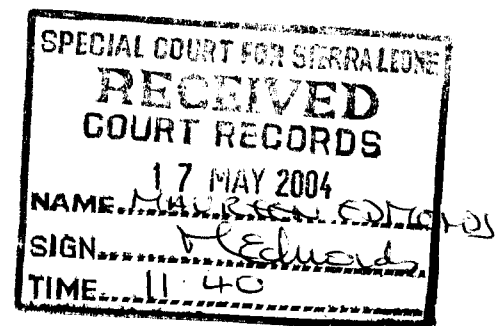 SPECIAL COURT FOR SIERRA LEONE
RECEIVED
COURT RECORDS
17 MAY 2004
NAME MAUREEN EDMONDS
SIGN MEdmonds
TIME 11.40